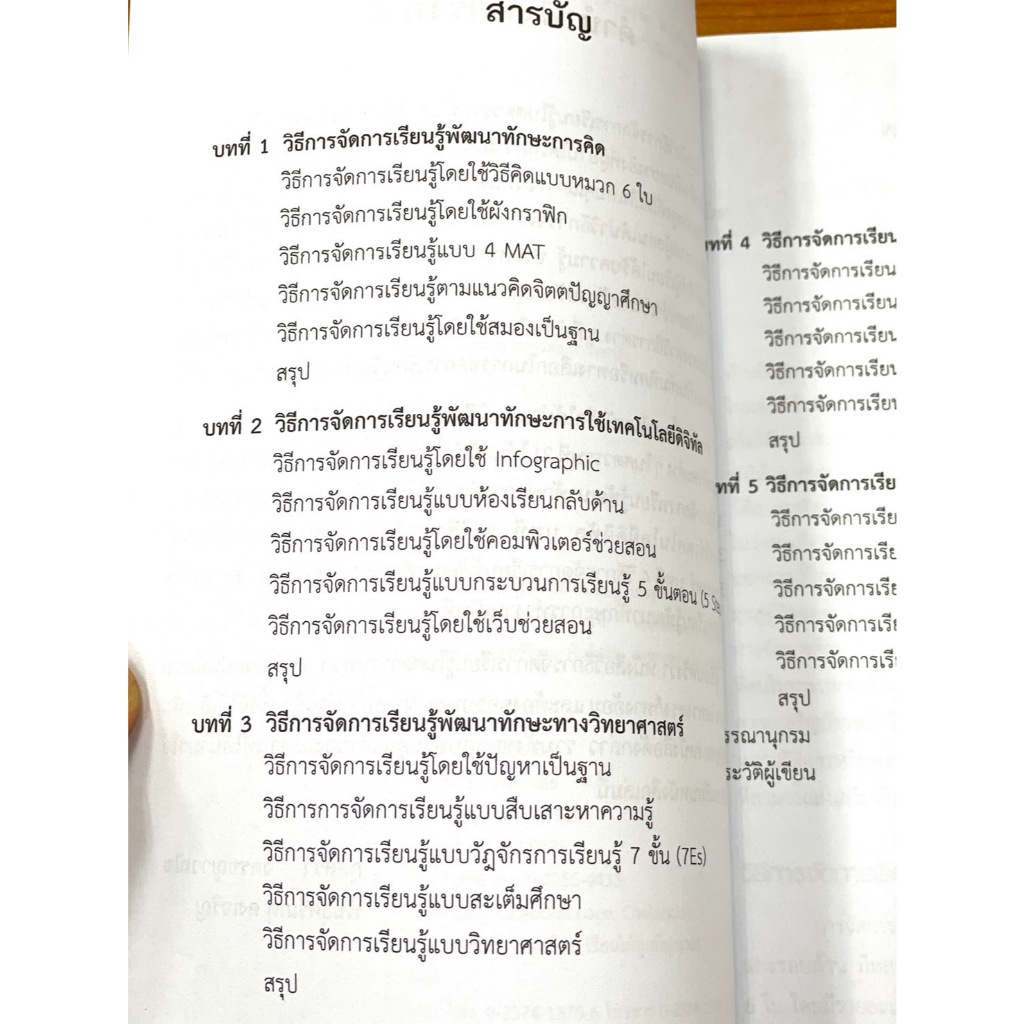 สารบัญ
บทที่ 1 วิธีการจัดการเรียนรู้พัฒนาทักษะการคิด
วิธีการจัดการเรียนรู้โดยใช้วิธีคิดแบบหมวก 6 ใบ
วิธีการจัดการเรียนรู้โดยใช้ผังกราฟิก
วิธีการจัดการเรียนรู้แบบ 4 MAT
วิธีการจัดการเรียนรู้ตามแนวคิดจิตตปัญญาศึกษา
วิธีการจัดการเรียนรู้โดยใช้สมองเป็นฐาน
สรุป
บทที่ 2 วิธีการจัดการเรียนรู้พัฒนาทักษะการใช้เทคโนโลยีดิจิทัล
วิธีการจัดการเรียนรู้โดยใช้ Infographic
วิธีการจัดการเรียนรู้แบบห้องเรียนกลับด้าน
วิธีการจัดการเรียนรู้โดยใช้คอมพิวเตอร์ช่วยสอน
วิธีการจัดการเรียนรู้แบบกระบวนการเรียนรู้ 5 ขั้นตอน (5 Ste
วิธีการจัดการเรียนรู้โดยใช้เว็บช่วยสอน
สรุป
บทที่ 3 วิธีการจัดการเรียนรู้พัฒนาทักษะทางวิทยาศาสตร์
วิธีการจัดการเรียนรู้โดยใช้ปัญหาเป็นฐาน
วิธีการการจัดการเรียนรู้แบบสืบเสาะหาความรู้
วิธีการจัดการเรียนรู้แบบวัฏจักรการเรียนรู้ 7 ขั้น (7Es)
วิธีการจัดการเรียนรู้แบบสะเต็มศึกษา
วิธีการจัดการเรียนรู้แบบวิทยาศาสตร์
สรุป
ทที่ 4 วิธีการจัดการเรียน
วิธีการจัดการเรียน
วิธีการจัดการเรียน
วิธีการจัดการเรียน
วิธีการจัดการเรียน
วิธีการจัดการเรียน
สรุป
ทที่ 5 วิธีการจัดการเรีย
วิธีการจัดการเรีย
วิธีการจัดการเรีย
วิธีการจัดการเรีย
วิธีการจัดการเรีย
วิธีการจัดการเรีย
สรุป
รรณานุกรม
ระวัติผู้เขียน